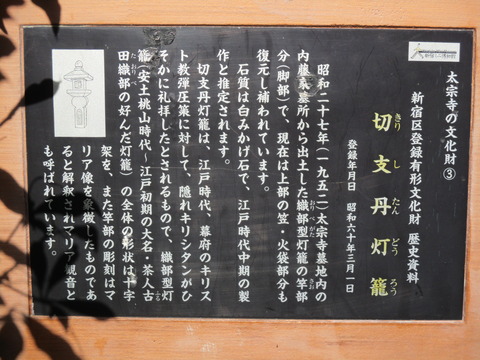 太宗寺の文化財 ③
新宿区登録有形文化財 歴史資料
切支丹灯籠
きりしたんどうろう
登録年月日 昭和六十年三月一日
昭和二十七年(一九五二)太宗寺墓地内の
内藤家墓所から出土した織部型灯籠の竿部
おりべがた
さお
分(脚部)で、現在は上部の笠・火袋部分も
復元し補われています。
石質は白みかげ石で、江戸時代中期の製
作と推定されます。
切支丹灯籠は、江戸時代、幕府のキリス
ト教弾圧策に対して、隠れキリシタンがひ
そかに礼拝したとされるもので、織部型灯
籠(安土桃山時代~江戸初期の大名・茶人古
田織部の好んだ灯籠)の全体の形状は十字
たおりべ
架を、また竿部の彫刻はマ
リア像を象徴したものであ
ると解釈されマリア観音と
も呼ばれています。